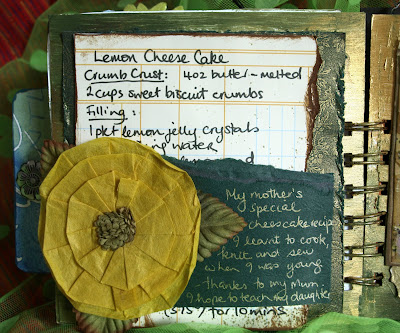 Lemon Cheese Cake
Crumb Crust: 4oz butter - melted
2 cups sweet biscuit crumbs
Filling:
1 pkt lemon jelly crystals
water
My mother's
special
cheesecake recipe
I learnt to cook,
knit and sew
when I was young
thanks to my Mum
I hope to teach my daughter
for 10 mins